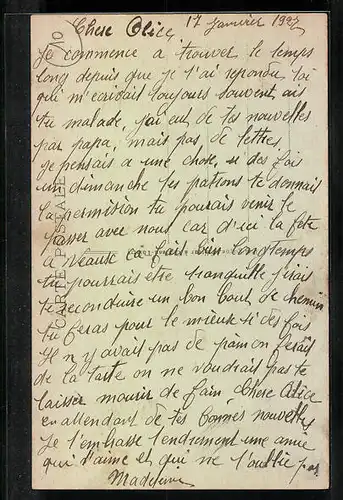 17 Janvier 1927
Chere Alice,
Je commence a trouver le temps
long depuis que je t'ai repondu, toi
qui m'ecrivait toujours souvent, ais
tu malade, j'ai eut de tes nouvelles
par papa, mais pas de lettres,
je pensais a une chose, si des fois
un dimanche tes patrons te donnait
la permistion tu pourais venir le
passer avec nous car d'ici la fete
a ça fait bien longtemps
tu pourrais etre tranquille j'irais
te reconduire un bon bout de chemin
tu feras pour le mieux si des fois
il n'y avait pas de pain on ferait
de la tarte on ne voudrait pas te
laisser mourir de faim, Chere Alice
en attendant de tes bonnes nouvelles
Je t'embrasse tendrement une amie
qui t'aime et qui ne t'oublie pas
Madeleine
CARTE POSTALE